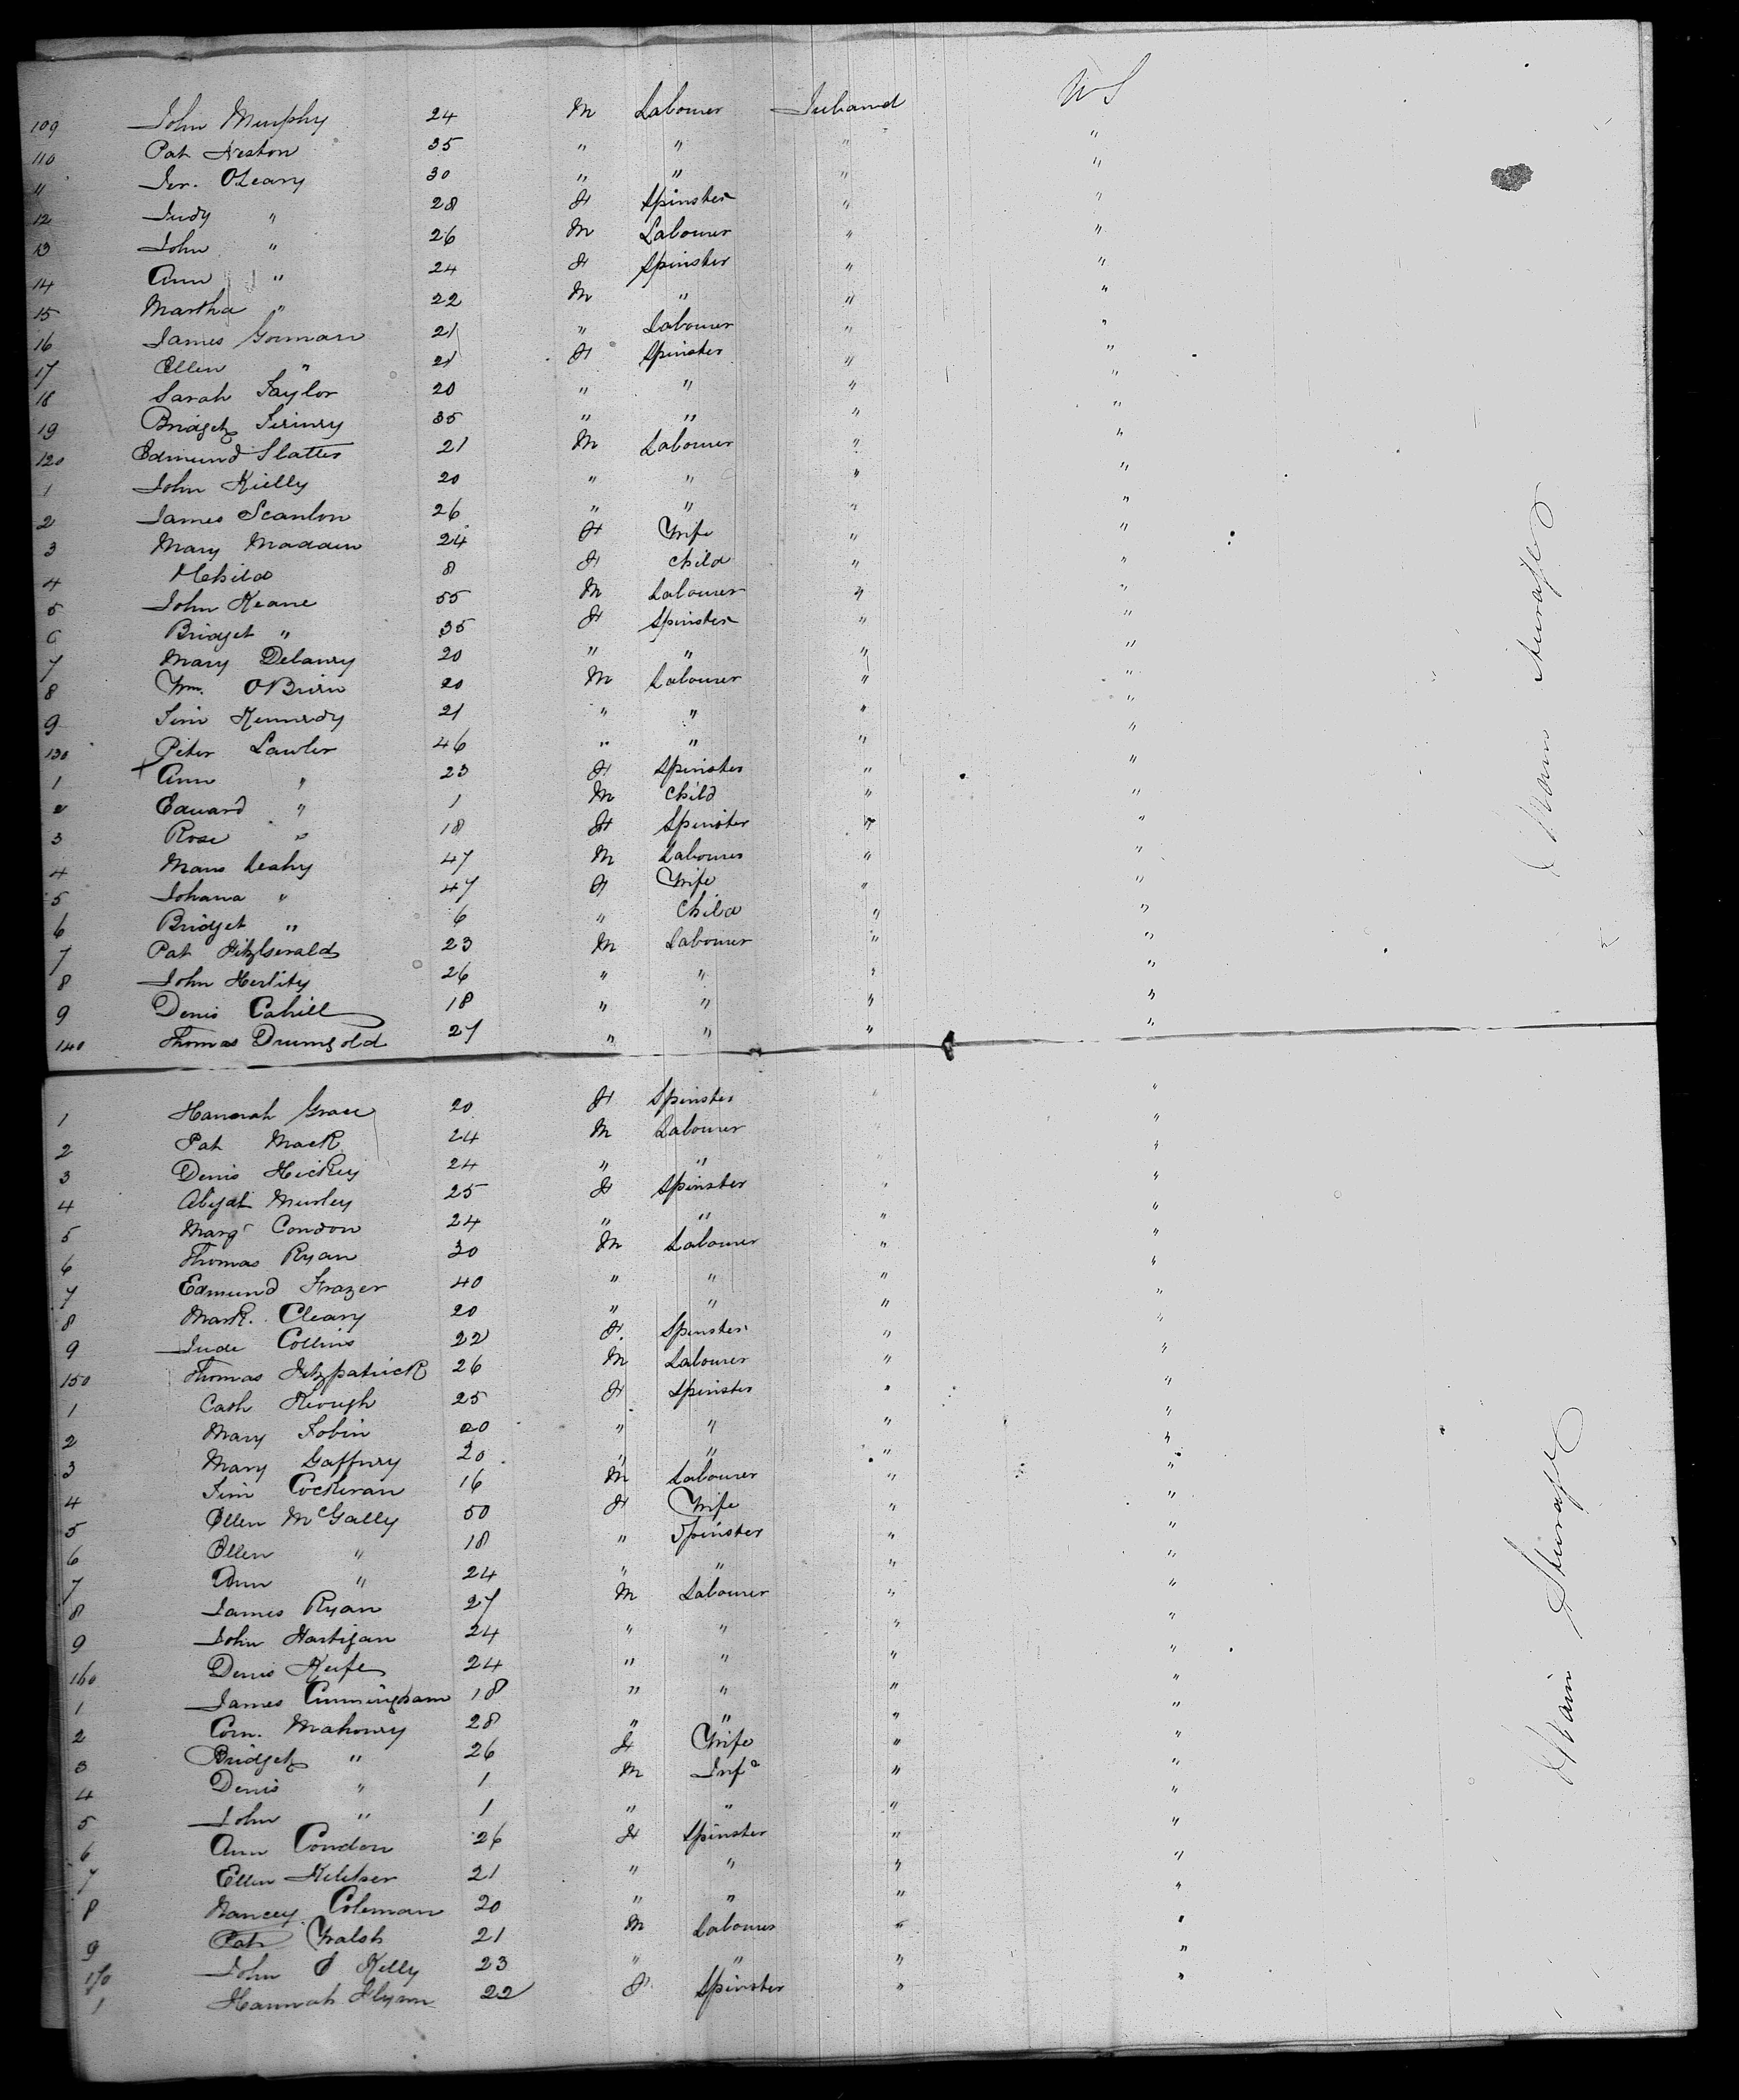 109 John Murphy 24 M Labourer Ireland U S
110 Pat Neston 35 " " " "
11 Jer. OLeary 30 " " " "
12 Judy " 28 F Spinster " "
13 John " 26 M Labourer " "
14 Ann " 24 F Spinster " "
15 Martha " 22 M " " "
16 James Gorman 21 " Labourer " "
17 Ellen " 21 F Spinster " "
18 Sarah Taylor 20 " " " "
19 Bridget 35 " " " "
120 Edmund Slatter 21 M Labourer " "
1 John Kielly 20 " " " "
2 James Scanlon 26 " " " "
3 Mary Madden 24 F Wife " "
4 8 F Child " "
5 John Keane 55 M Labourer " "
6 Bridget " 35 F Spinster " "
7 Mary Delanry 20 " " " "
8 Wm. OBrien 20 M Labourer " "
9 Tim Kennedy 21 " " " "
130 Peter Lawler 46 " " " "
1 + Ann " 23 F Spinster " "
2 Edward " 1 M Child " "
3 Rose " 18 F Spinster " "
4 Leahy 47 M Labourer " "
5 Johana " 47 F Wife " "
6 Bridget " 6 " Child " "
7 Pat FitzGerald 23 M Labourer " "
8 John Herlity 26 " " " "
9 Denis Cahill 18 " " " "
140 Thomas Drumgold 27 " " " "
1 Hannah Grace 20 F Spinster " "
2 Pat Mack 24 M Labourer " "
3 Denis Hickey 24 " " " "
4 Murley 25 F Spinster " "
5 Margt Condon 24 " " " "
6 Thomas Ryan 30 M Labourer " "
7 Edmund Frazer 40 " " " "
8 Mark. Cleary 20 " " " "
9 Jude Collins 22 F. Spinster " "
150 Thomas Fitzpatrick 26 M Labourer " "
1 Cath Keough 25 F Spinster " "
2 Mary Tobin 20 " " " "
3 Mary Gaffnry 20 " " " "
4 Tim Cockeran 16 M Labourer " "
5 Ellen McGally 50 F Wife " "
6 Ellen " 18 " Spinster " "
7 Ann " 24 " " " "
8 James Ryan 27 M Labourer " "
9 John Hartigan 24 " " " "
160 Denis Keife 24 " " " "
1 James Cunningham 18 " " " "
2 Corn. Mahonry 28 " " " "
3 Bridget " 26 F Wife " "
4 Denis " 1 M Inft " "
5 John " 1 " " " "
6 Ann Condon 26 F Spinster " "
7 Ellen Kelcher 21 " " " "
8 Nancey Coleman 20 " " " "
9 Pat Walsh 21 M Labourer " "
170 John O Kelly 23 " " " "
1 Hannah Flynn 22 F Spinster " "
Main Steerage
Main Steerage